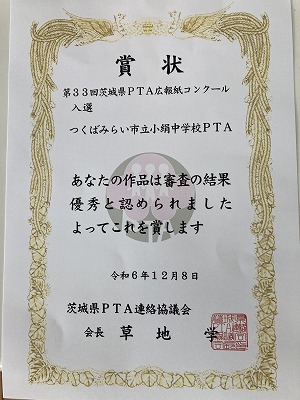 賞状
第33回茨城県PTA広報紙コンクール
入選
つくばみらい市立小絹中学校PTA
あなたの作品は審査の結果
優秀と認められました
よってこれを賞します
令和6年12月8日
茨城県PTA連絡協議会
会長 草地 学